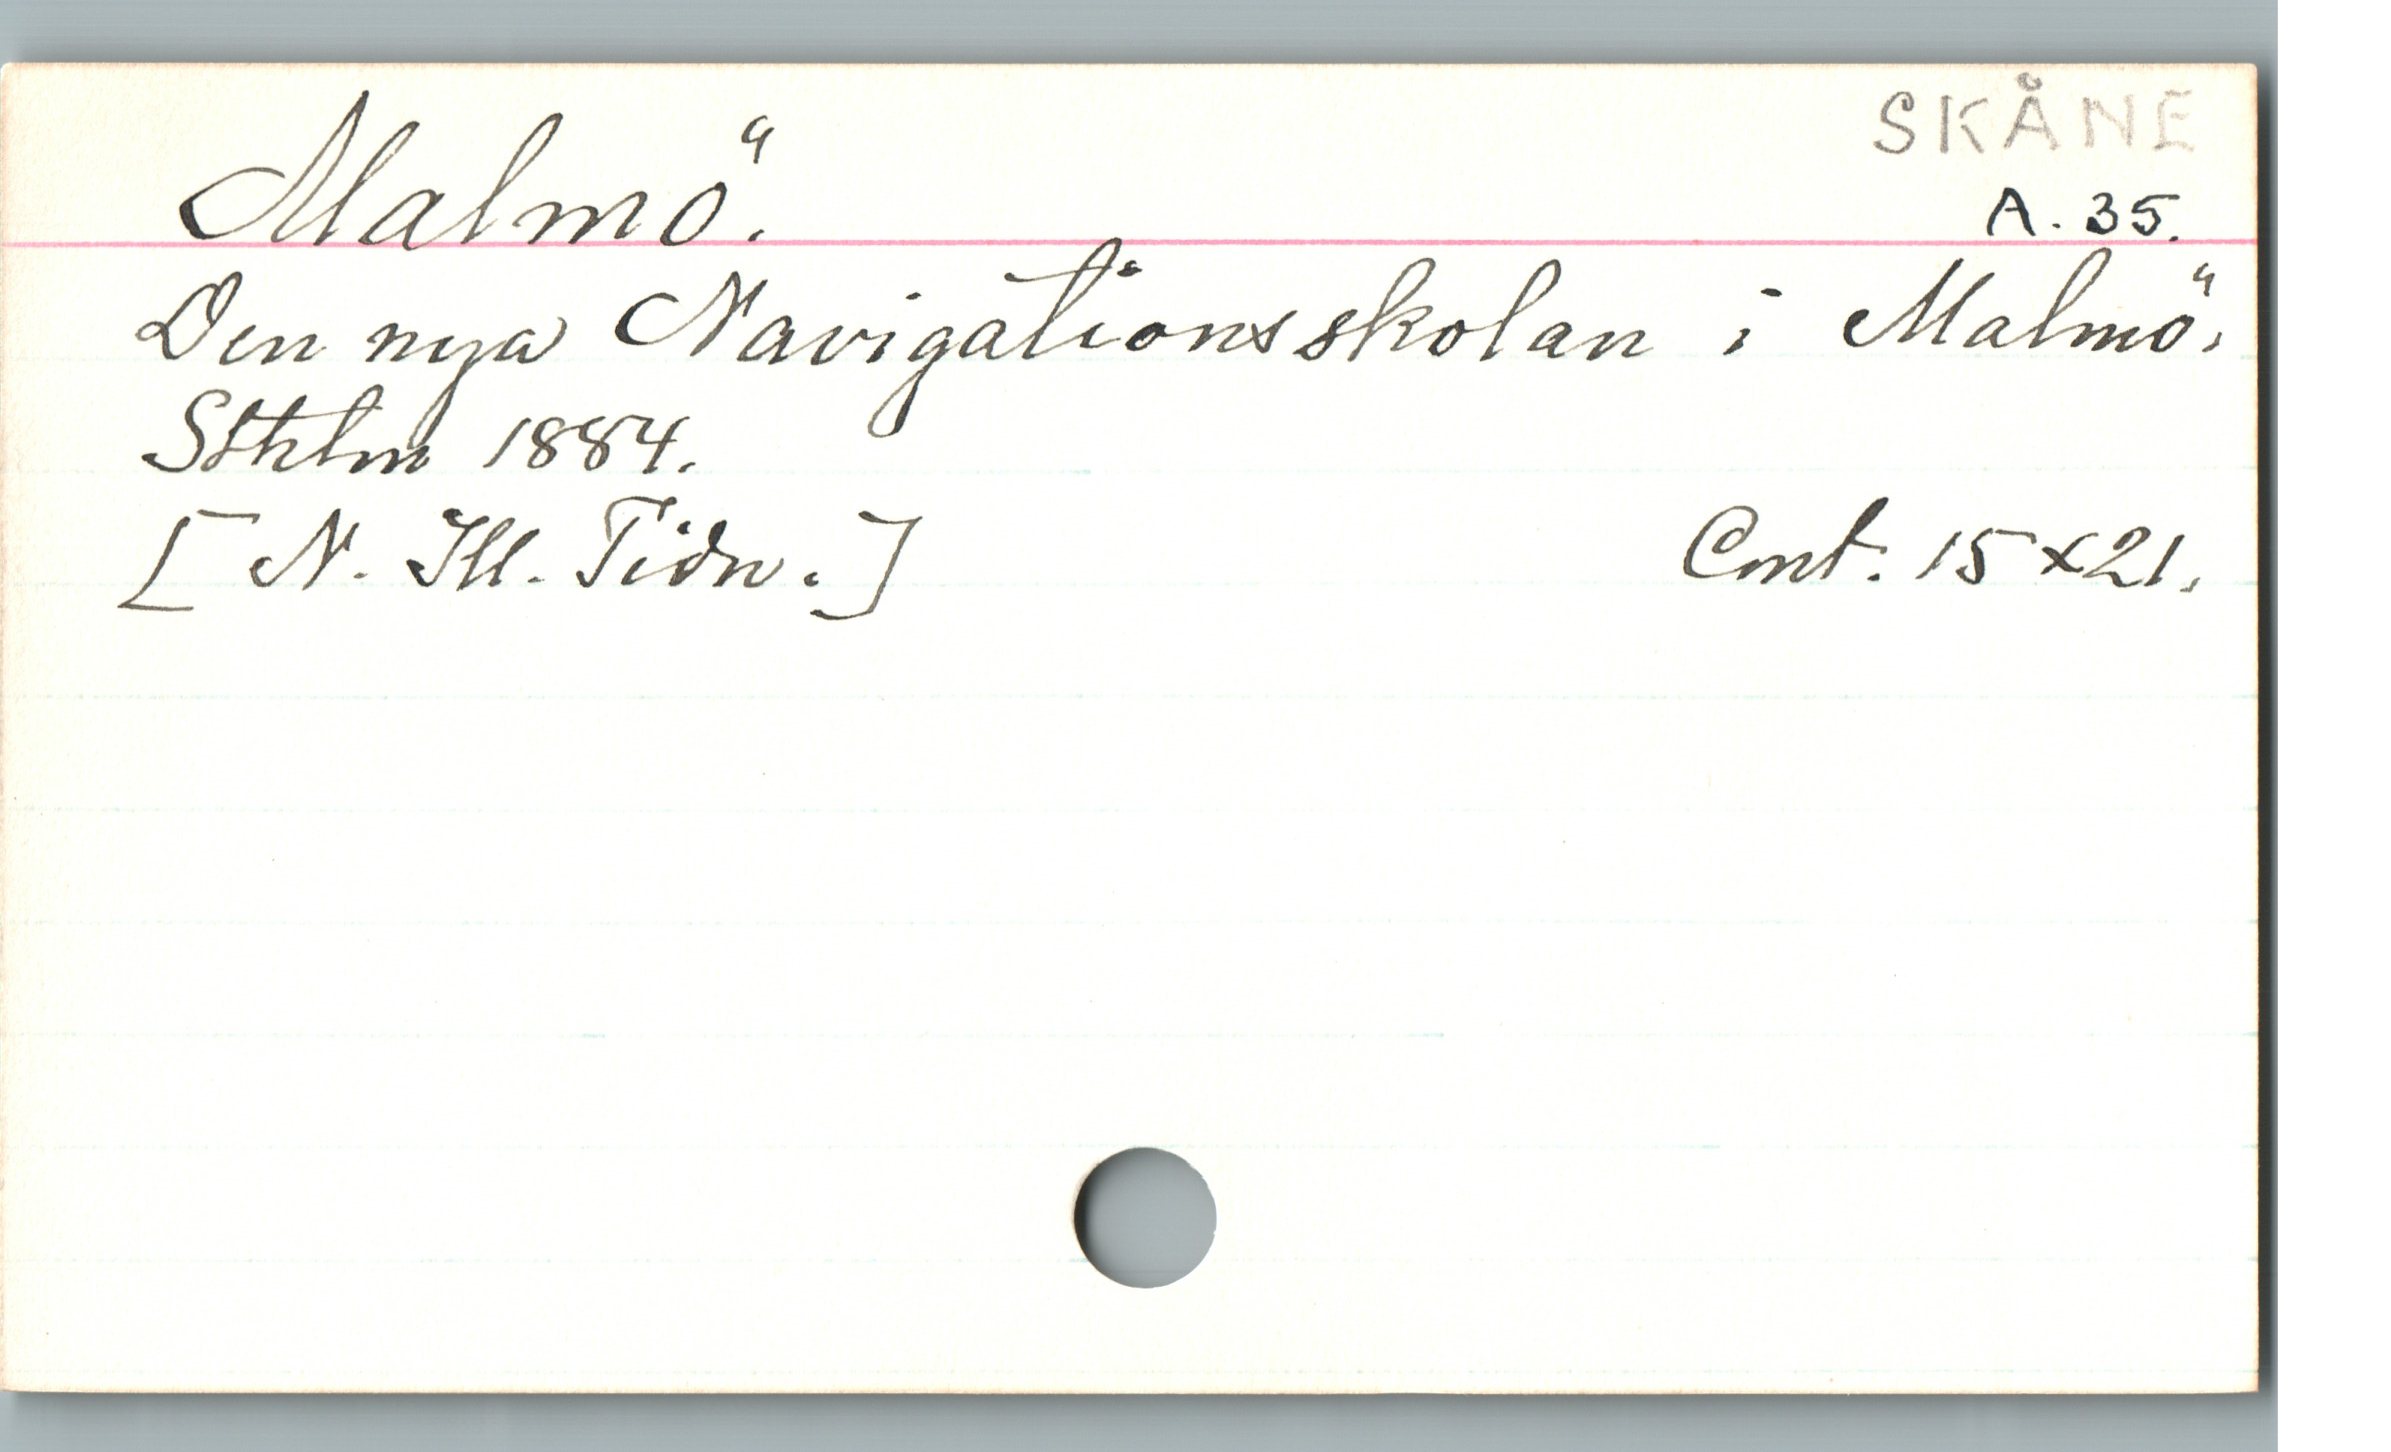 SKÅNE
Malmö.
A. 35.
Den nya Navigationsskolan i Malmö.
Sthlm 1884.
[N. Ill. Tidn.] Cmt. 15x21.